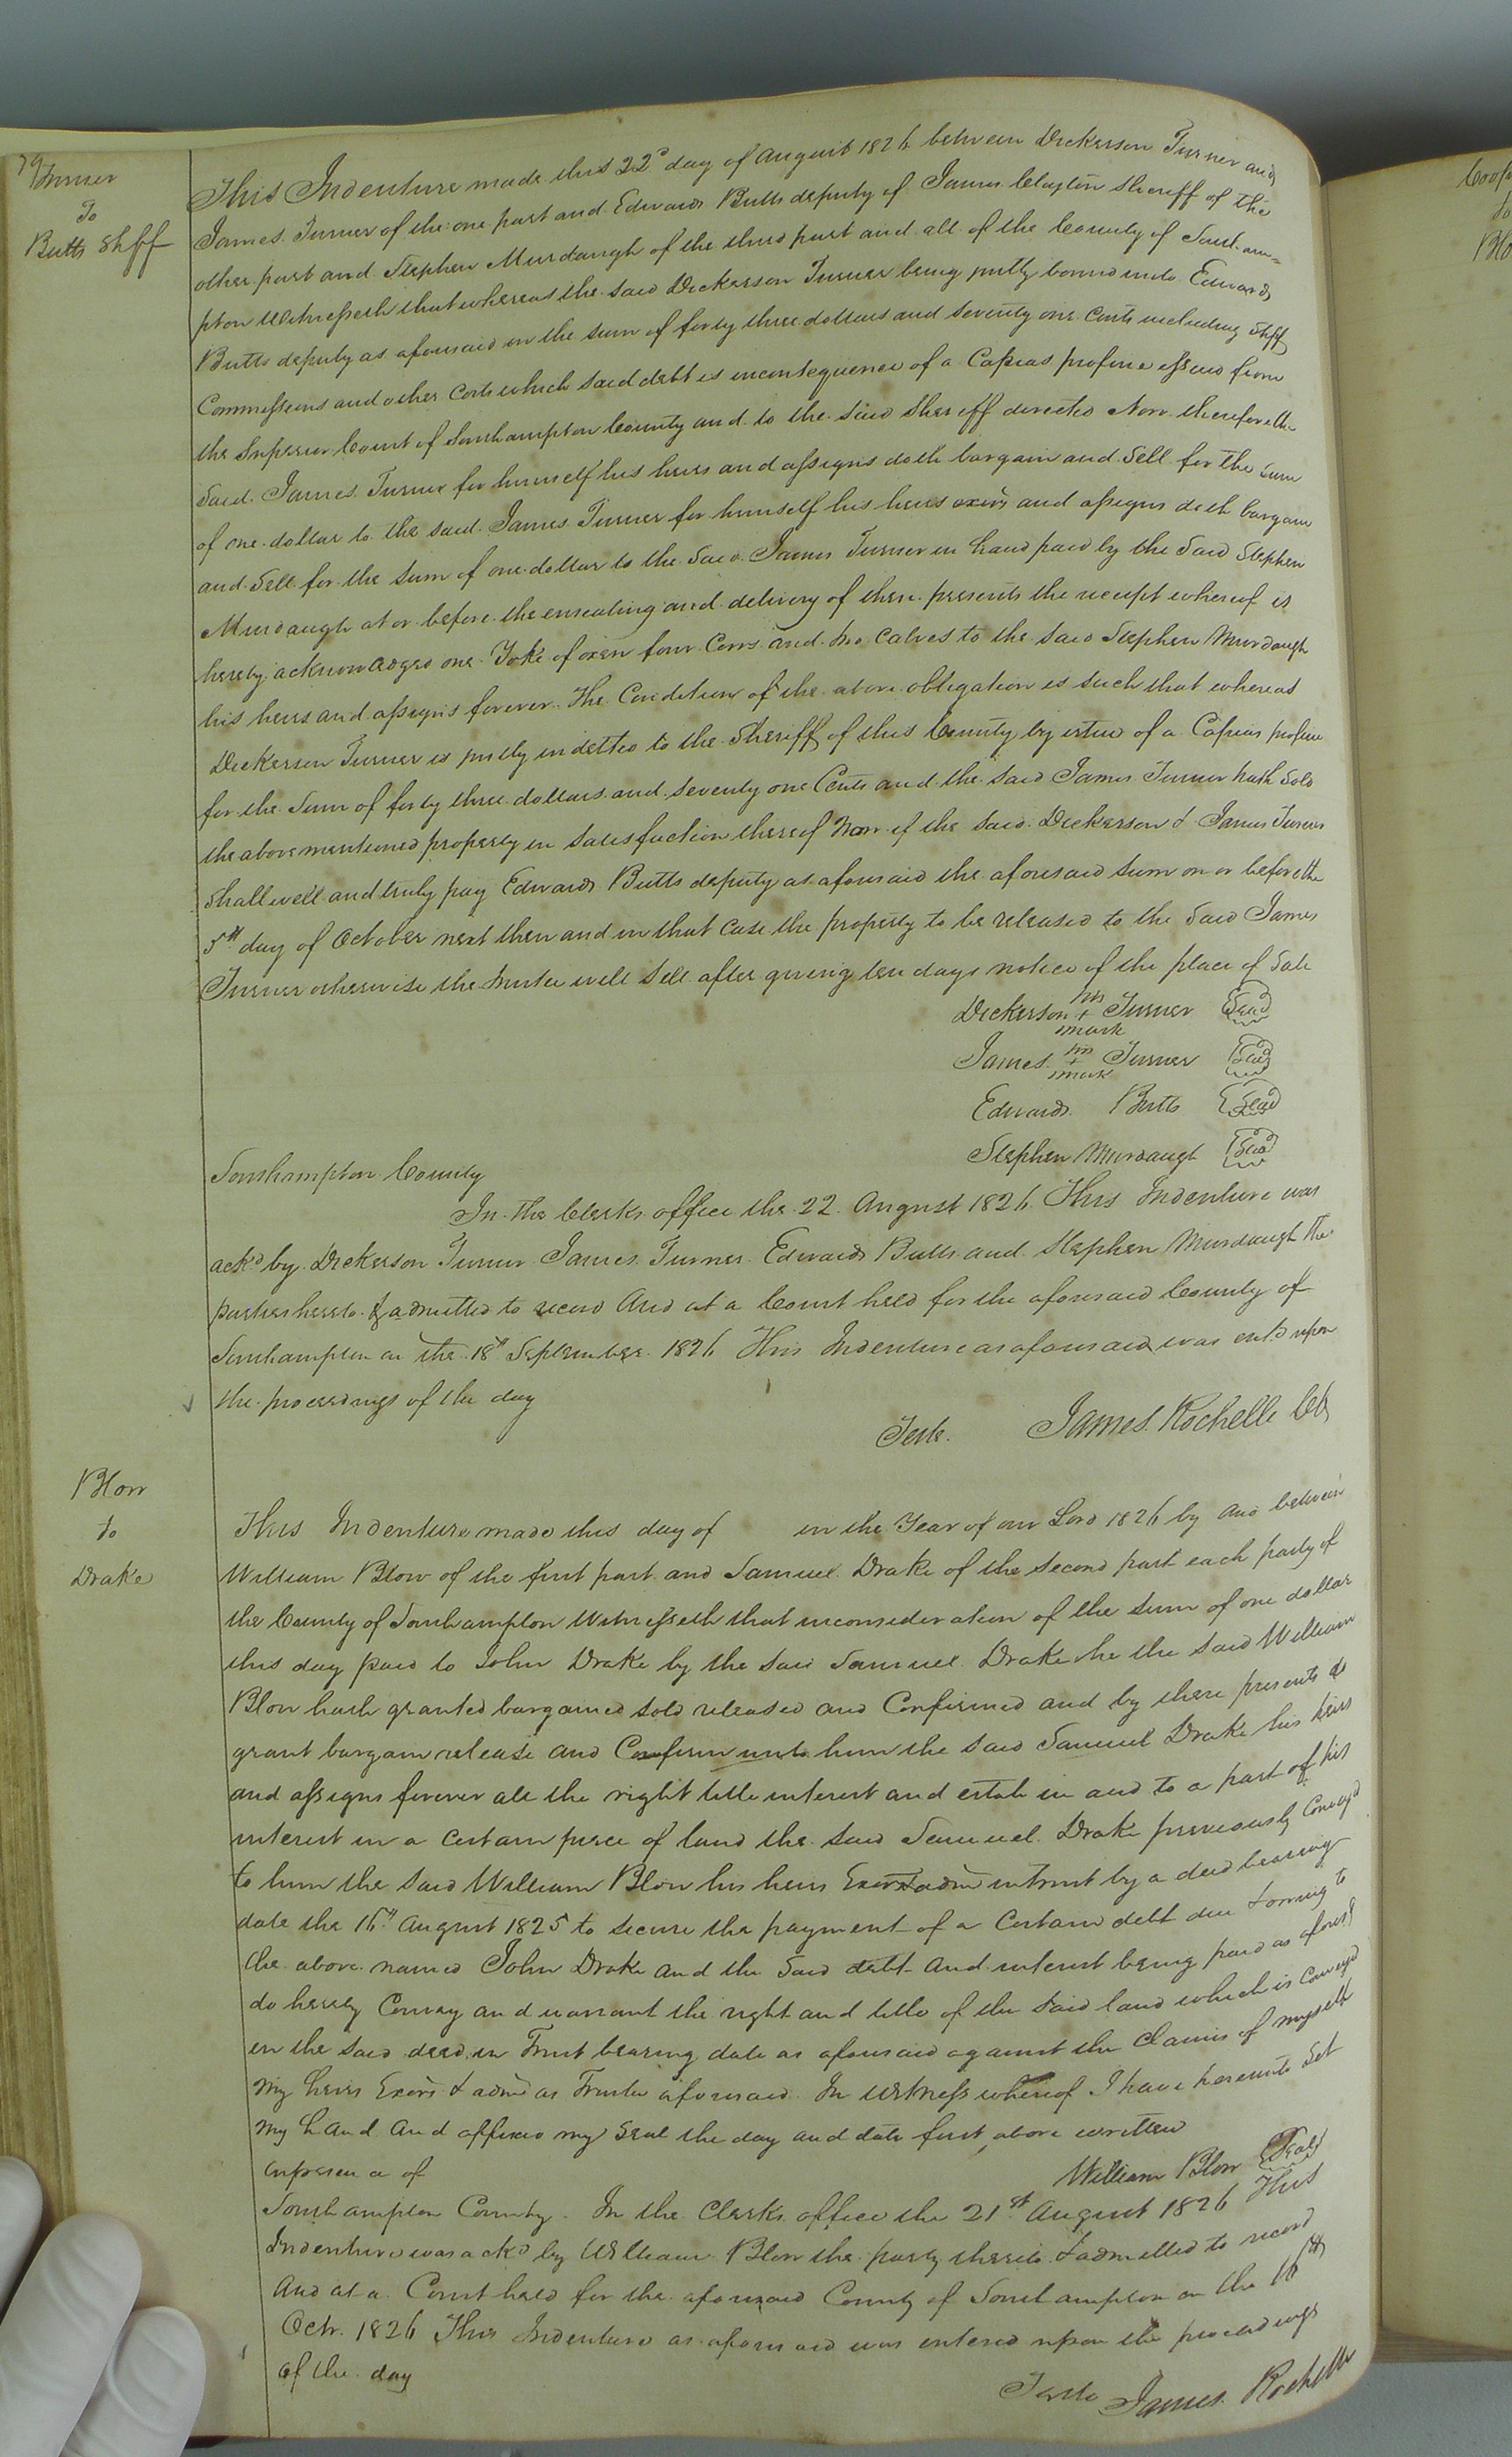 79
Turner
To
Butts Shff
This Indenture made this 22d day of August 1826 between Dickerson Turner and
James Turner of the one part and Edward Butts deputy of James Clayton Sheriff of the
other part and Stephen Murdaugh of the third part and all of the County of Southam=
pton Witnesseth that whereas the said Dickerson Turner being justly bound unto Edward
Butts deputy as aforesaid in the sum of forty three dollars and seventy one Cents including Shff
Commissions and other Costs which said debt is inconsequence of a Capias profine issued from
the Superior Court of Southampton County and to the said Sheriff directed Now therefore the
said James Turner for himself his heirs and assigns doth bargain and Sell for the sum
of one dollar to the said James Turner for himself his heirs exors and assigns doth bargain
and Sell for the sum of one dollar to the Said James Turner in hand paid by the Said Stephen
Murdaugh at or before the ensealing and delivery of these presents the receipt whereof is
hereby acknowledged one Yoke of oxen four Cows and two Calves to the said Stephen Murdaugh
his heirs and assigns forever. The Condition of the above obligation is such that whereas
Dickerson Turner is justly indetted to the Sheriff of this County by virtue of a Capias profine
for the Sum of forty three dollars and seventy one Cents and the said James Turner hath Sold
the above mentioned property in satisfaction thereof Now if the said Dickerson & James Turner
Shall well and truly pay Edward Butts deputy as aforesaid the aforesaid sum on or before the
5th day of October next then and in that Case the property to be released to the Said James
Turner otherwise the Trustee will Sell after giving ten days notice of the place of Sale
Dickerson his + mark Turner Seal
James his + mark Turner Seal
Edward Butts Seal
Stephen Murdaugh Seal
Southampton County
In the Clerks office the 22 August 1826 This Indenture was
ackd by Dickerson Turner James Turner Edward Butts and Stephen Murdaugh the
parties hereto & admitted to record And at a Court held for the aforesaid County of
Southampton on the 18th September 1826 This Indenture as aforesaid was entd upon
the proceedings of the day
Teste. James Rochelle Clk
Blow
to
Drake
This Indenture made this day of in the Year of our Lord 1826 by and between
William Blow of the first part and Samuel Drake of the second part each party of
the County of Southampton Witnesseth that inconsideration of the sum of one dollar
this day paid to John Drake by the said Samuel Drake he the said William
Blow hath granted bargained sold released and Confirmed and by these presents do
grant bargain release and Confirm unto him the said Samuel Drake his heirs
and assigns forever all the right title interest and estate in and to a part of his
interest in a certain piece of land the said Samuel Drake previously Conveyd
to him the said William Blow his heirs Exors & admr intrust by a deed bearing
date the 16th August 1825 to secure the payment of a Certain debt due & owing to
the above named John Drake and the Said debt and interest being paid as aforesd
do hereby Convey and warrant the right and title of the said land which is Conveyd
in the said deed in Trust bearing date as aforesaid against the Claims of myself
my heirs Exors & admr as Trustee aforesaid. In witness whereof I have hereunto Set
my hand and affixed my seal the day and date first above written
inpresence of
William Blow Seal
Southampton County. In the Clerks office the 21st August 1826 This
Indenture was ackd by William Blow the party thereto & admitted to record
And at a Court held for the aforesaid County of Southampton on the 16th
Octr. 1826 This Indenture as aforesaid was entered upon the proceedings
of the day
Teste James Rochelle